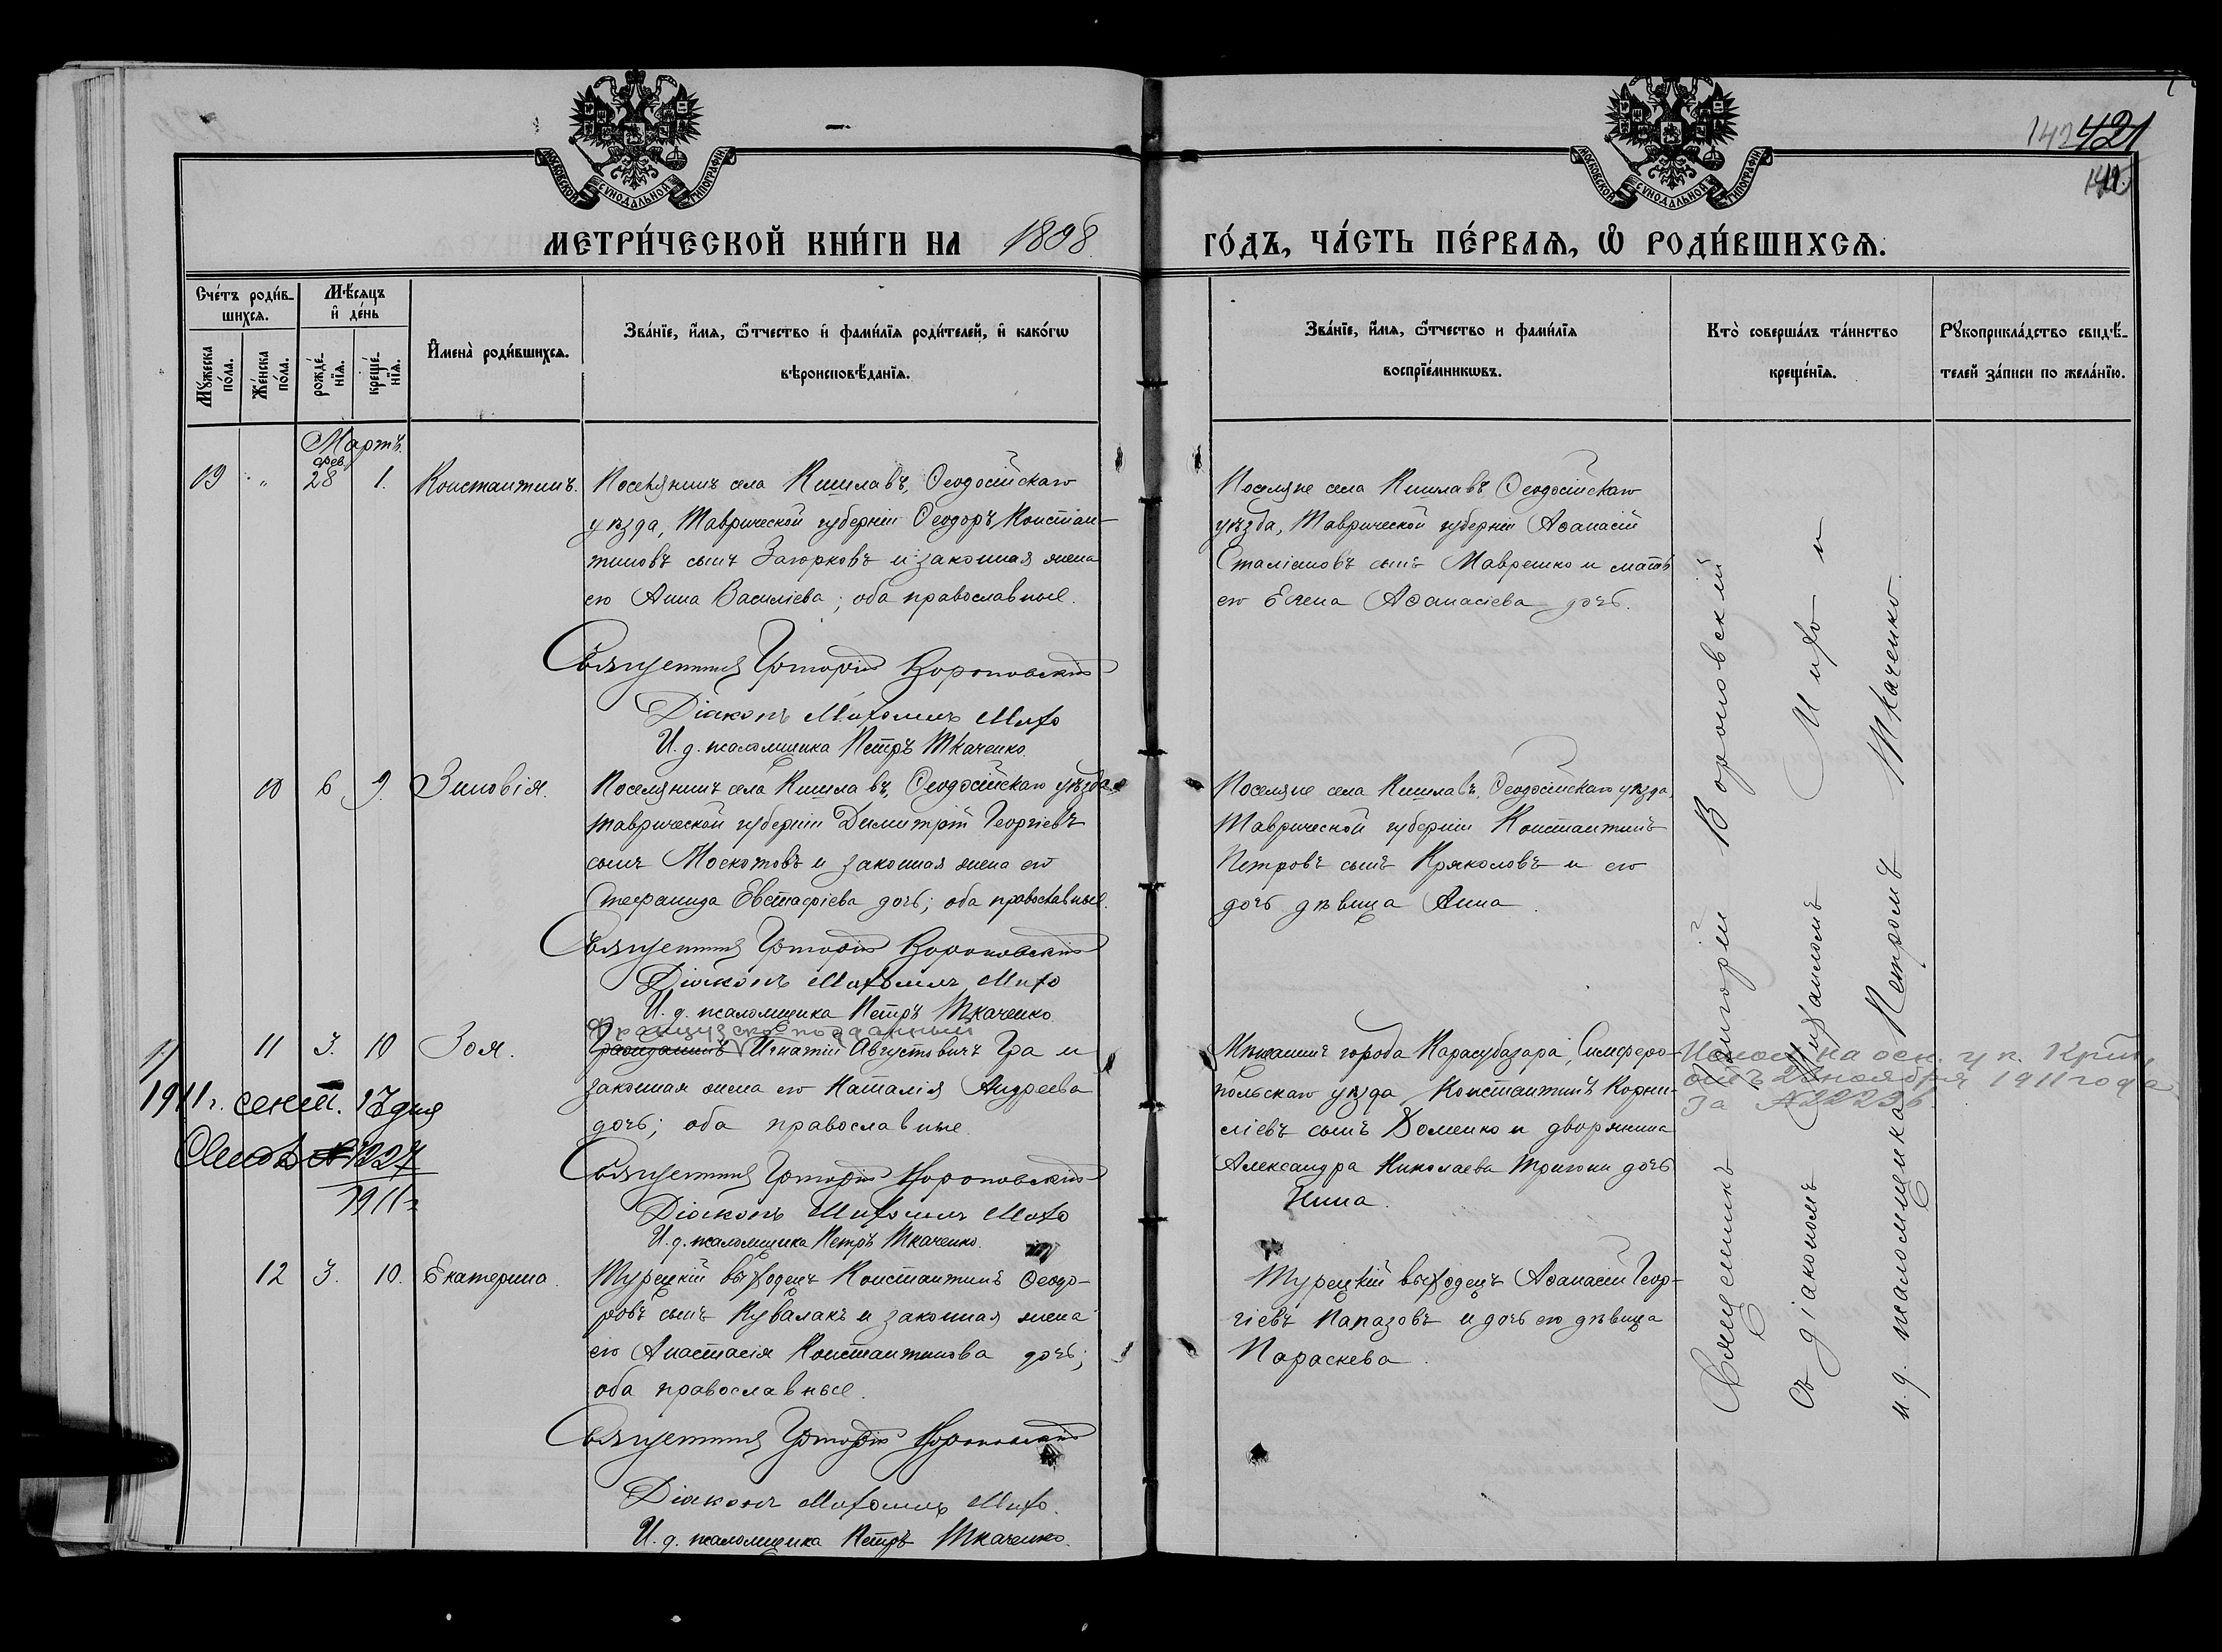 142 421
141
МОСКОВСКОЙ СѴНОДАЛЬНОЙ ТИПОГРАФІИ
МОСКОВСКОЙ СѴНОДАЛЬНОЙ ТИПОГРАФІИ
МЕТРИ́ЧЕСКОЙ КНИ́ГИ НА 1898 ГО́ДЪ, ЧА́СТЬ ПЕ́РВАѦ, Ѽ РОДИ́ВШИХСѦ.
Сче́тъ роди́в-
шихсѧ.
Мꙋ́жеска по́ла.
Же́нска по́ла.
Мѣ́сѧцъ и де́нь
рожде́-
нїѧ.
креще́-
нїѧ.
И҆мена̀ роди́вшихсѧ.
Зва́нїе, и҆́мѧ, ѻ҆́тчество и҆ фами́лїѧ роди́телей, и҆ како́гѡ
вѣроисповѣ́данїѧ.
Зва́нїе, и҆́мѧ, ѻ҆́тчество и фами́лїѧ
воспрїе́мникѡвъ.
Кто̀ соверша́лъ та́инство
креще́нїѧ.
Рꙋкоприкла́дство свидѣ́-
телей за́писи по жела́нїю.
Мартъ.
фев.
09 " 28 1. Константинъ.
Поселянинъ села Кишлавъ, Ѳеодосійскаго
уѣзда, Таврической губерніи Ѳеодоръ Констан-
тиновъ сынъ Загорковъ и законная жена
его Анна Василіева; оба православные.
Священникъ Григорій Вороновскій
Діаконъ Михаилъ Михо
И. д. псаломщика Петръ Ткаченко.
Поселяне села Кишлавъ Ѳеодосійскаго
уѣзда, Таврической губерніи Аѳанасій
Сталіановъ сынъ Маврешко и мать
его Елена Аѳанасіева дочь.
10 6 9. Зиновія.
Поселянинъ села Кишлавъ, Ѳеодосійскаго уѣзда
Таврической губерніи Димитрій Георгіевъ
сынъ Москотовъ и законная жена его
Стефанида Евстафіева дочь; оба православные.
Священникъ Григорій Вороновскій
Діаконъ Михаилъ Михо
И. д. псаломщика Петръ Ткаченко
Поселяне села Кишлавъ, Ѳеодосійскаго уѣзда,
Таврической губерніи Константинъ
Петровъ сынъ Кряколовъ и его
дочь дѣвица Анна.
11 3. 10 Зоя.
Французскоподданный
Гражданинъ Игнатій Августовичъ Гра и
законная жена его Наталія Андреева
дочь; оба православные.
Священникъ Григорій Вороновскій
Діаконъ Михаилъ Михо
И. д. псаломщика Петръ Ткаченко.
Мѣщанинъ города Карасубазара, Симферо-
польскаго уѣзда Константинъ Корни-
ліевъ сынъ Доменко и дворянина
Александра Николаева Тригони дочь
Нина.
1911 г. сент. 17 дня
№ 1227
1911 г.
на осн. ук.
отъ 23 ноября 1911 года
за №
12 3. 10. Екатерина.
Турецкій выходецъ Константинъ Ѳеодо-
ровъ сынъ Кувалакъ и законная жена
его Анастасія Константинова дочь;
оба православные.
Священникъ Григорій Вороновскій
Діаконъ Михаилъ Михо.
И. д. псаломщика Петръ Ткаченко.
Турецкій выходецъ Аѳанасій Геор-
гіевъ Папазовъ и дочь его дѣвица
Параскева.
Священникъ Григорій Вороновскій
съ діакономъ Михаиломъ Михо и
и. д. псаломщика Петромъ Ткаченко.